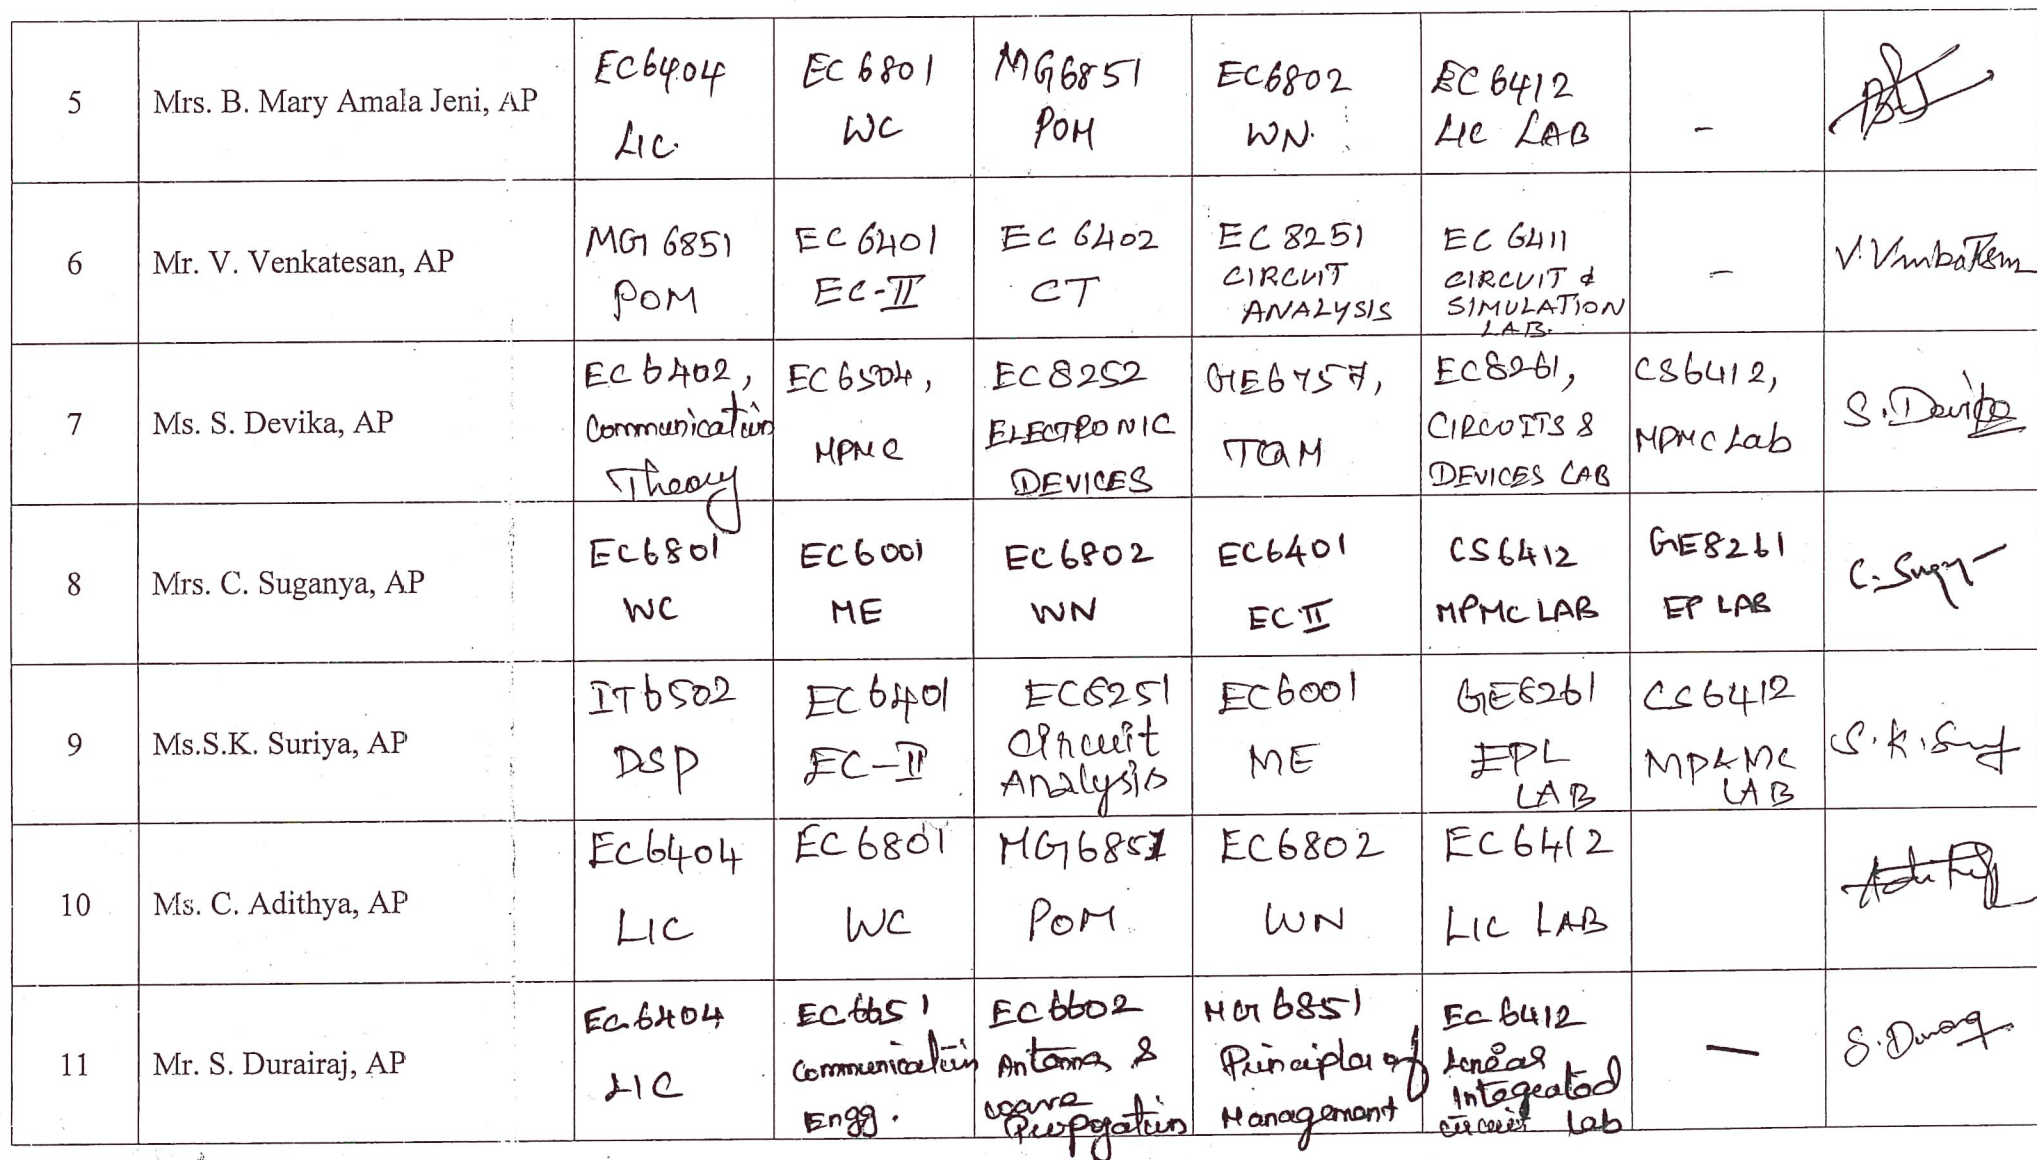 5
Mrs. B. Mary Amala Jeni, AP
EC6404
LIC.
EC 6801
WC
MG6851
POM
EC6802
WN.
EC 6412
LIC LAB
-
6
Mr. V. Venkatesan, AP
MG 6851
POM
EC 6401
EC-II
EC 6402
CT
EC 8251
CIRCUIT
ANALYSIS
EC 6411
CIRCUIT &
SIMULATION
LAB.
-
V.Venkatesan
7
Ms. S. Devika, AP
EC 6402,
Communication
Theory
EC6504,
MPMC
EC8252
ELECTRONIC
DEVICES
GE6757,
TQM
EC8261,
CIRCUITS &
DEVICES LAB
CS6412,
MPMC Lab
S.Devika
8
Mrs. C. Suganya, AP
EC6801
WC
EC6001
ME
EC6802
WN
EC6401
EC II
CS6412
MPMC LAB
GE8261
EP LAB
9
Ms.S.K. Suriya, AP
IT6502
DSP
EC6401
EC-II
EC8251
Circuit
Analysis
EC6001
ME
GE8261
EPL
LAB
CS6412
MP&MC
LAB
10
Ms. C. Adithya, AP
EC6404
LIC
EC 6801
WC
MG6851
POM
EC6802
WN
EC 6412
LIC LAB
11
Mr. S. Durairaj, AP
EC6404
LIC
EC6651
Communication
Engg.
EC6602
Antenna &
wave
Propgation
MG 6851
Principles of
Management
EC 6412
Linear
Integrated
circuit Lab
-